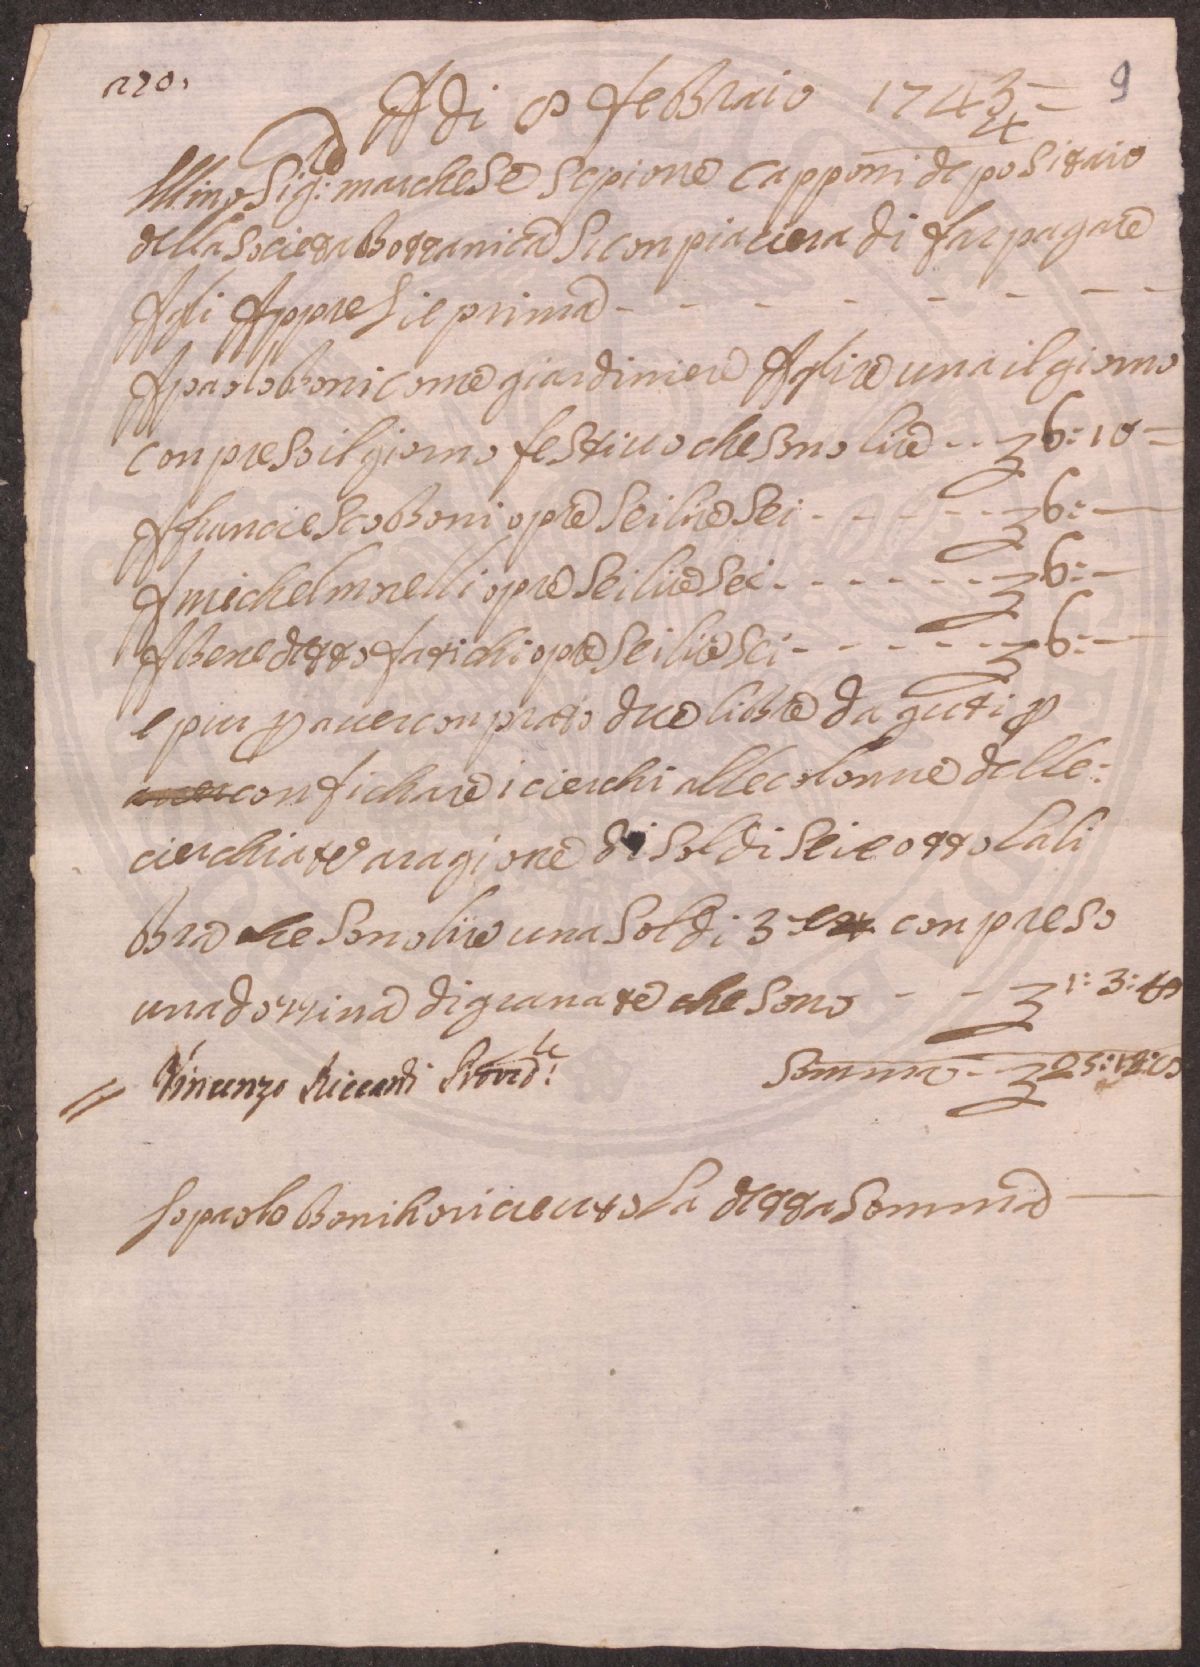 220.
9
A di 8 febbraio 1743/4
Illmo Sig: marchese Scipione Capponi depositario
della Società Bottanica Si conpiacera di far pagare
Agli Appresi e prima - - - - - - -
A paolo Boni come giardiniere A lire una il giorno
conpreso il giorno festiuo che sono lire - - 6: 10
A franciesco Boni opre sei lire sei - - - - - 6: —
A michel morelli opre sei lire sei - - - - - - 6: —
A Benedetto fatichi opre sei lire sei - - - - - 6: —
e piu p auer conprato due libre d aguti p
auer confichare i cierchi alle colonne delle
cierchiate a ragione di soldi sei e otto la li
bra che sono lire una soldi 3 conpreso
una dozzina di granate che sono - - 1: 3:
Vincenzo Riccardi Provede:
Somma - - 25:
Io paolo Boni ho riceuuto la detta somma —